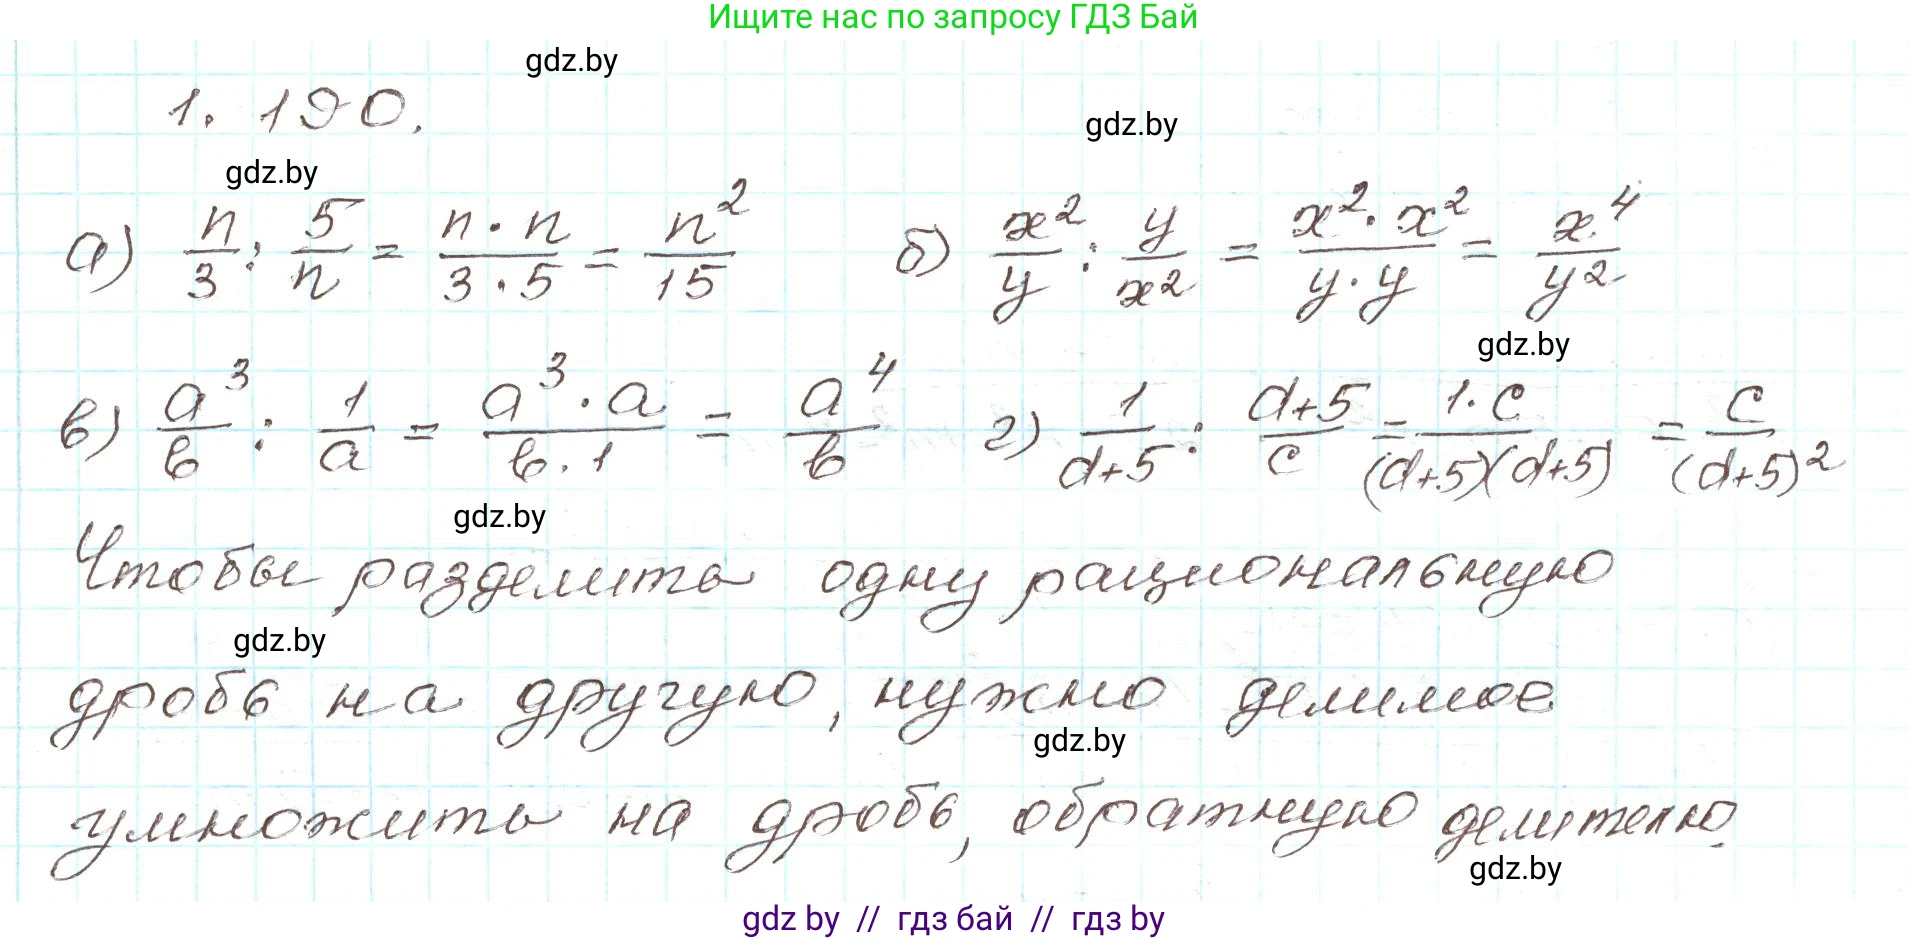 Ищите нас по запросу ГДЗ Бай
gdz.by
1.190.
gdz.by
gdz.by
а) n/3 : 5/n = n·n/3·5 = n²/15 б) x²/y : y/x² = x²·x²/y·y = x⁴/y²
gdz.by
в) a³/b : 1/a = a³·a/b·1 = a⁴/b г) 1/d+5 : d+5/c = 1·c/(d+5)(d+5) = c/(d+5)²
gdz.by
Чтобы разделить одну рациональную
gdz.by
дробь на другую, нужно делимое
gdz.by
умножить на дробь, обратную делителю.
gdz.by
gdz by // гдз бай // гдз by